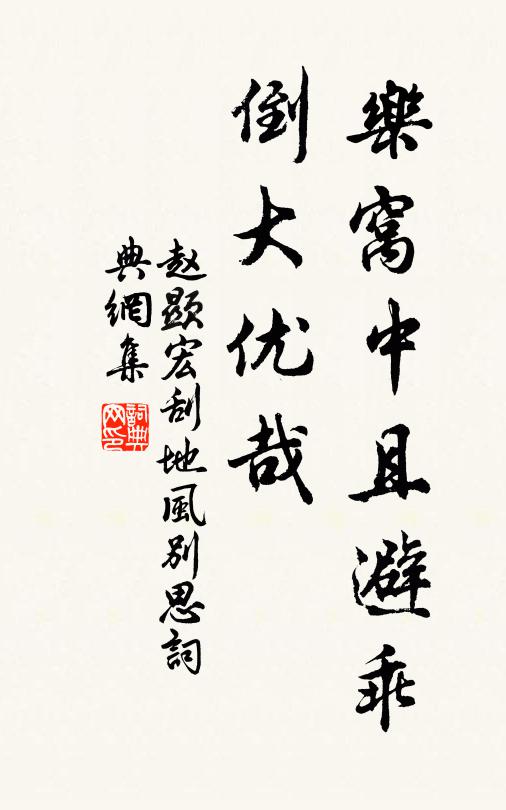 樂窩中且避乖
倒大优哉
赵顕宏刮地風别思詞
典網集
詞典网印